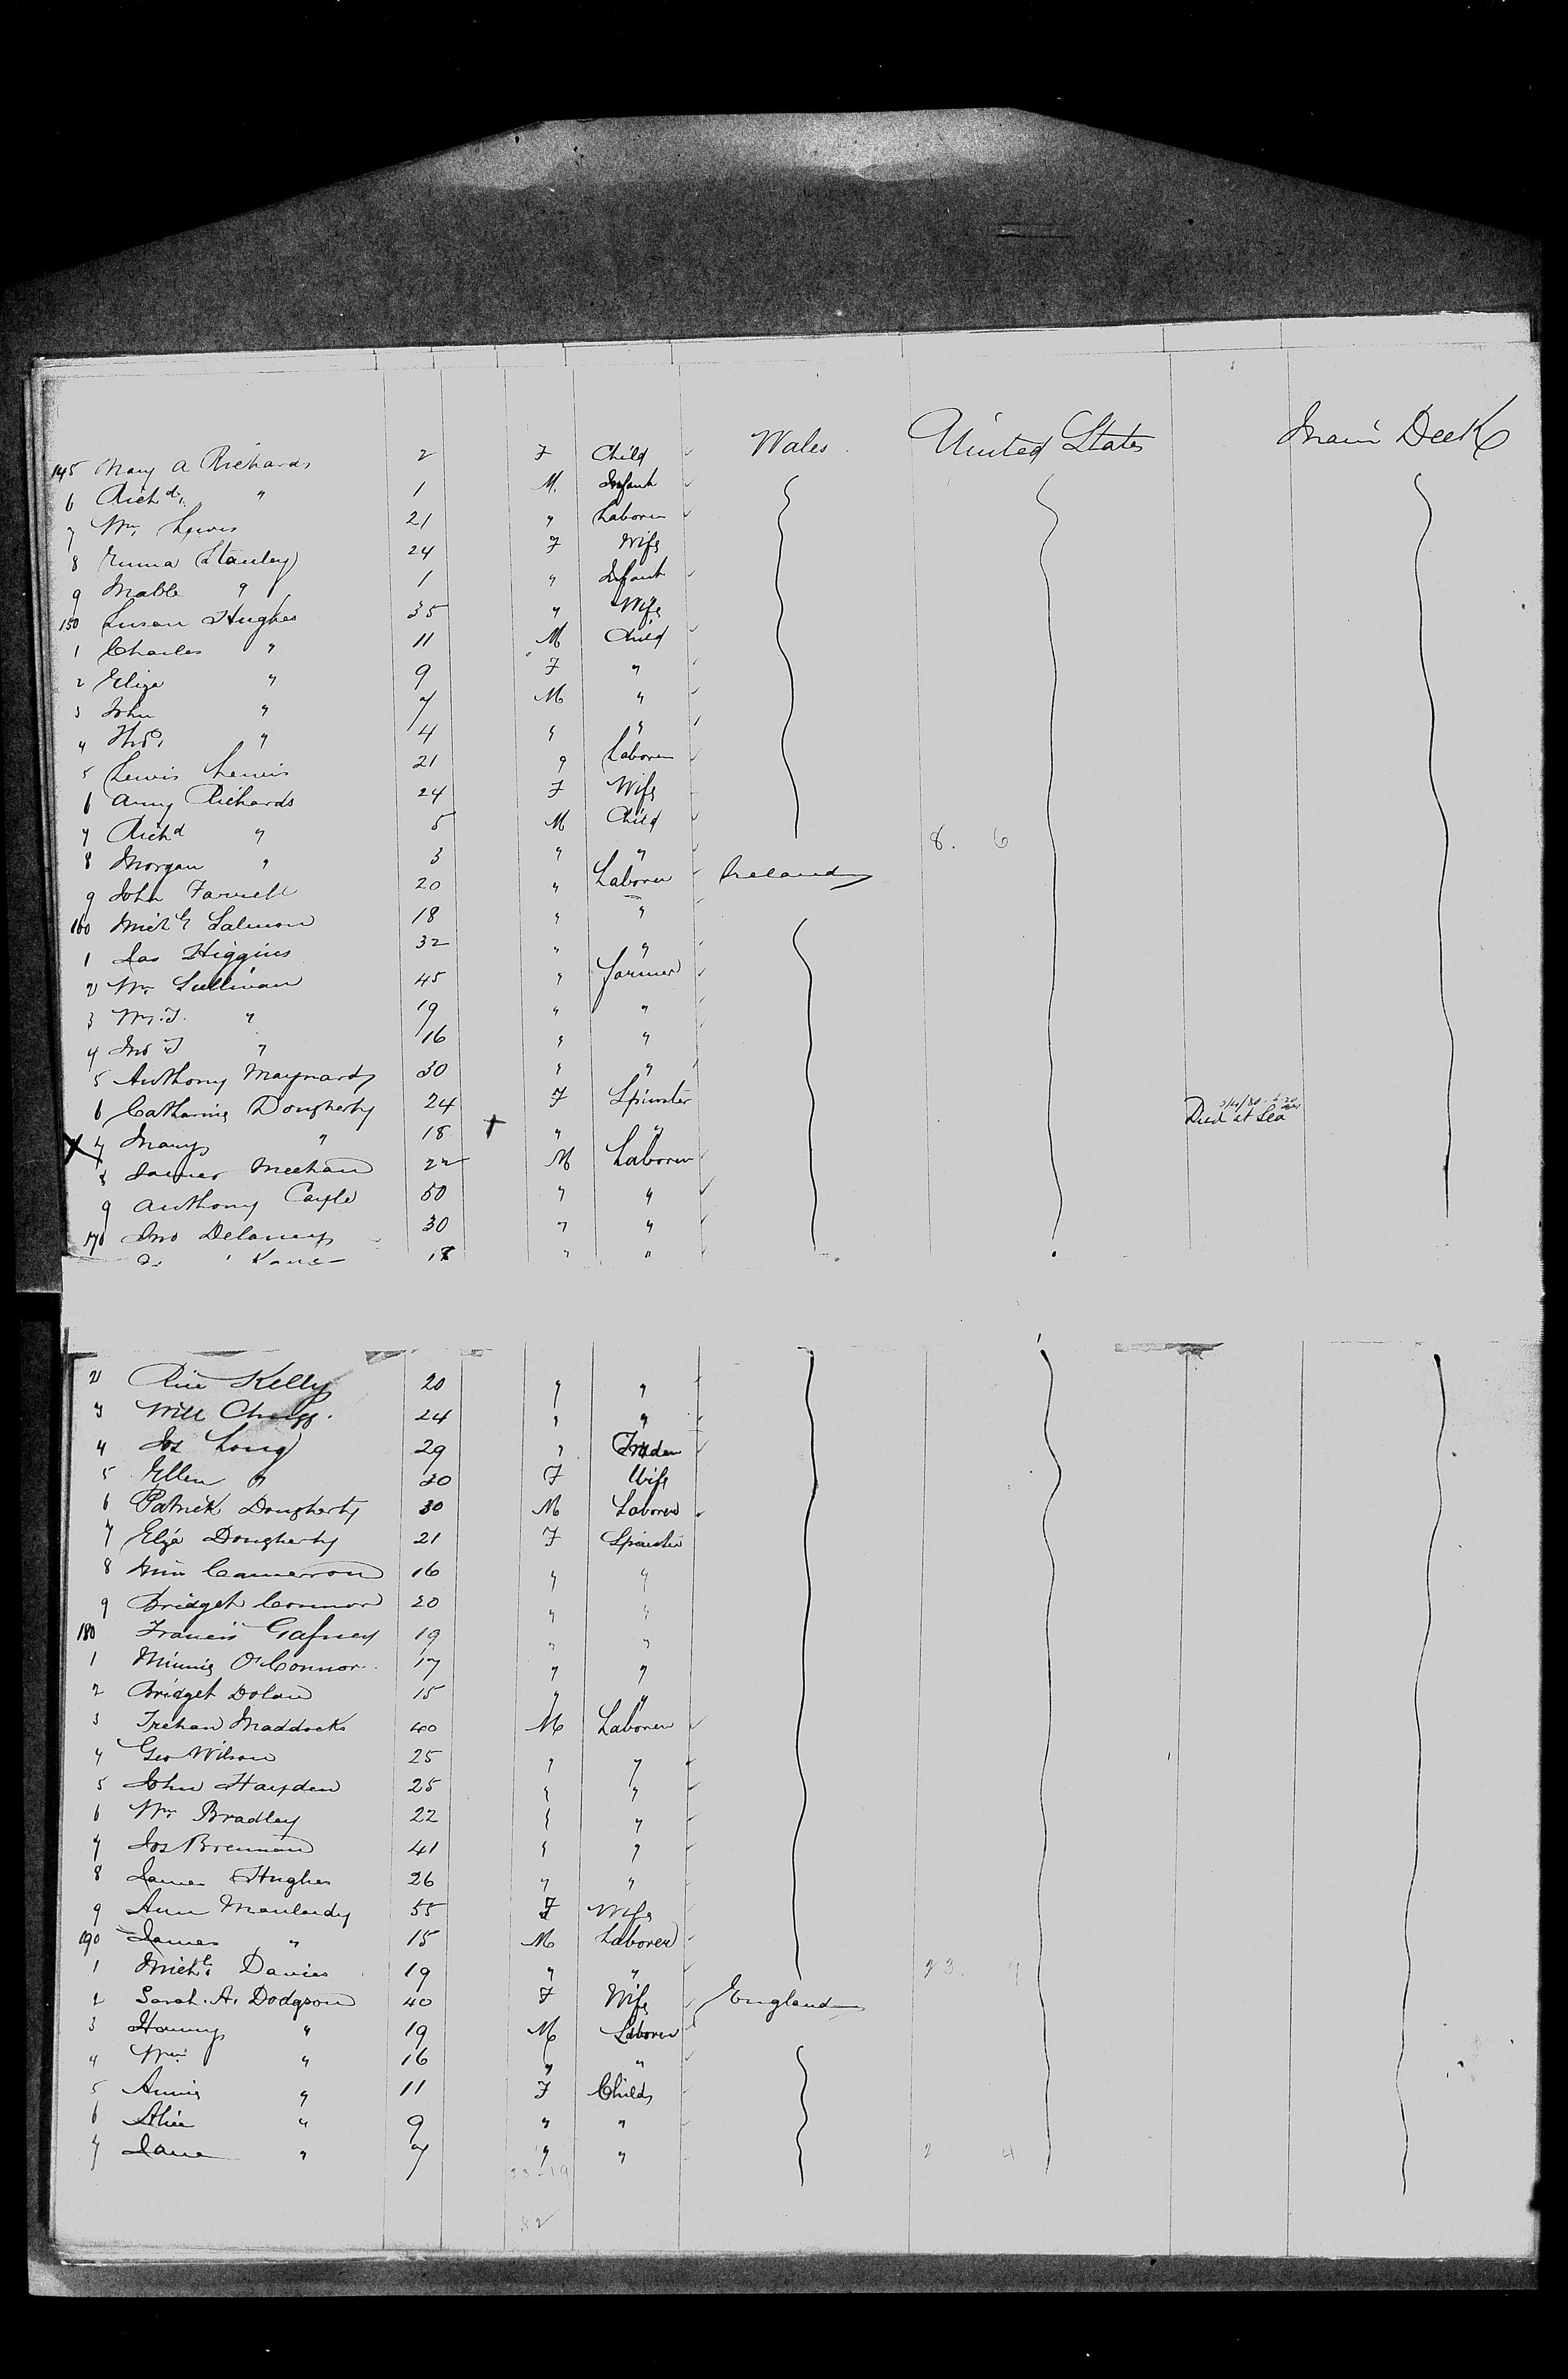 145 Mary A Richards 2 F Child Wales United States Main Deck
6 Richd. " 1 M. Infant
7 Wm. Lewis 21 " Laborer
8 Emma Stanley 24 F Wife
9 Mable " 1 " Infant
150 Susan Hughes 35 " Wife
1 Charles " 11 M Child
2 Eliza " 9 F "
3 John " 7 M "
4 Thos. " 4 " "
5 Lewis Lewis 21 " Laborer
6 Amy Richards 24 F Wife
7 Richd " 5 M Child
8 Morgan " 3 " " 8. 6
9 John Farrell 20 " Laborer Ireland
160 Michl Salmon 18 " "
1 Jas Higgins 32 " "
2 Wm Sullivan 45 " Farmer
3 Wm. J. " 19 " "
4 Jno J " 16 " "
5 Anthony Maynard 30 " "
6 Catharine Dougherty 24 F Spinster
X 7 Mary " 18 + " " Died at Sea
8 James Meehan 22 M Laborer
9 Anthony Coyle 50 " "
170 Jno Delaney 30 " "
Kane 18 " "
2 Kelly 20 " "
3 Will 24 " "
4 Jos Long 29 " Trader
5 Ellen " 20 F Wife
6 Patrick Dougherty 30 M Laborer
7 Eliza Dougherty 21 F Spinster
8 Ann Camerron 16 " "
9 Bridget Connor 20 " "
180 Francis Gafney 19 " "
1 Minnie O'Connor 17 " "
2 Bridget Dolan 15 " "
3 Trehan Maddocks 40 M Laborer
4 Geo Wilson 25 " "
5 John Hayden 25 " "
6 Wm Bradley 22 " "
7 Jos Brennan 41 " "
8 James Hughes 26 " "
9 Ann 55 F Wife
190 James " 15 M Laborer
1 Michl. Davies 19 " " 23.
2 Sarah. A. Dodgson 40 F Wife England
3 Harry " 19 M Laborer
4 Wm " 16 " "
5 Annie " 11 F Child
6 Alice " 9 " "
7 Jane " 7 " " 2 4
33-19
52